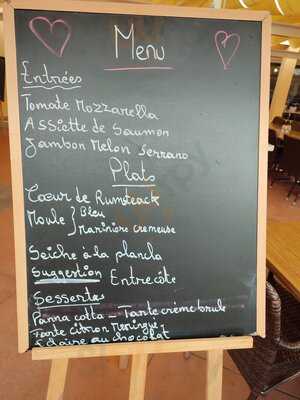 Menu
Entrées
Tomate Mozzarella
Assiette de Saumon
Jambon Melon Serrano
Plats
Cœur de Rumsteack
Moule { Bleu
Marinière cremeuse
Seiche à la plancha
Suggestion Entrecôte
Desserts
Panna cotta - Tarte crème brulé
Tarte citron Meringué
Eclaire au chocolat